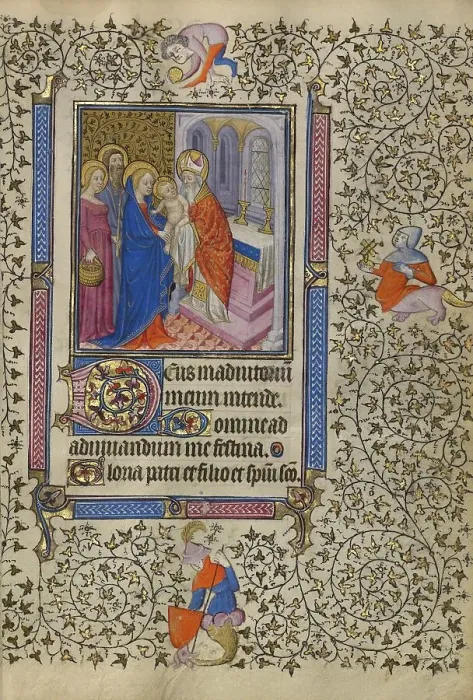 Deus in adiutorium
meum intende.
Domine ad
adiuuandum me festina.
Gloria patri et filio et spui sco.